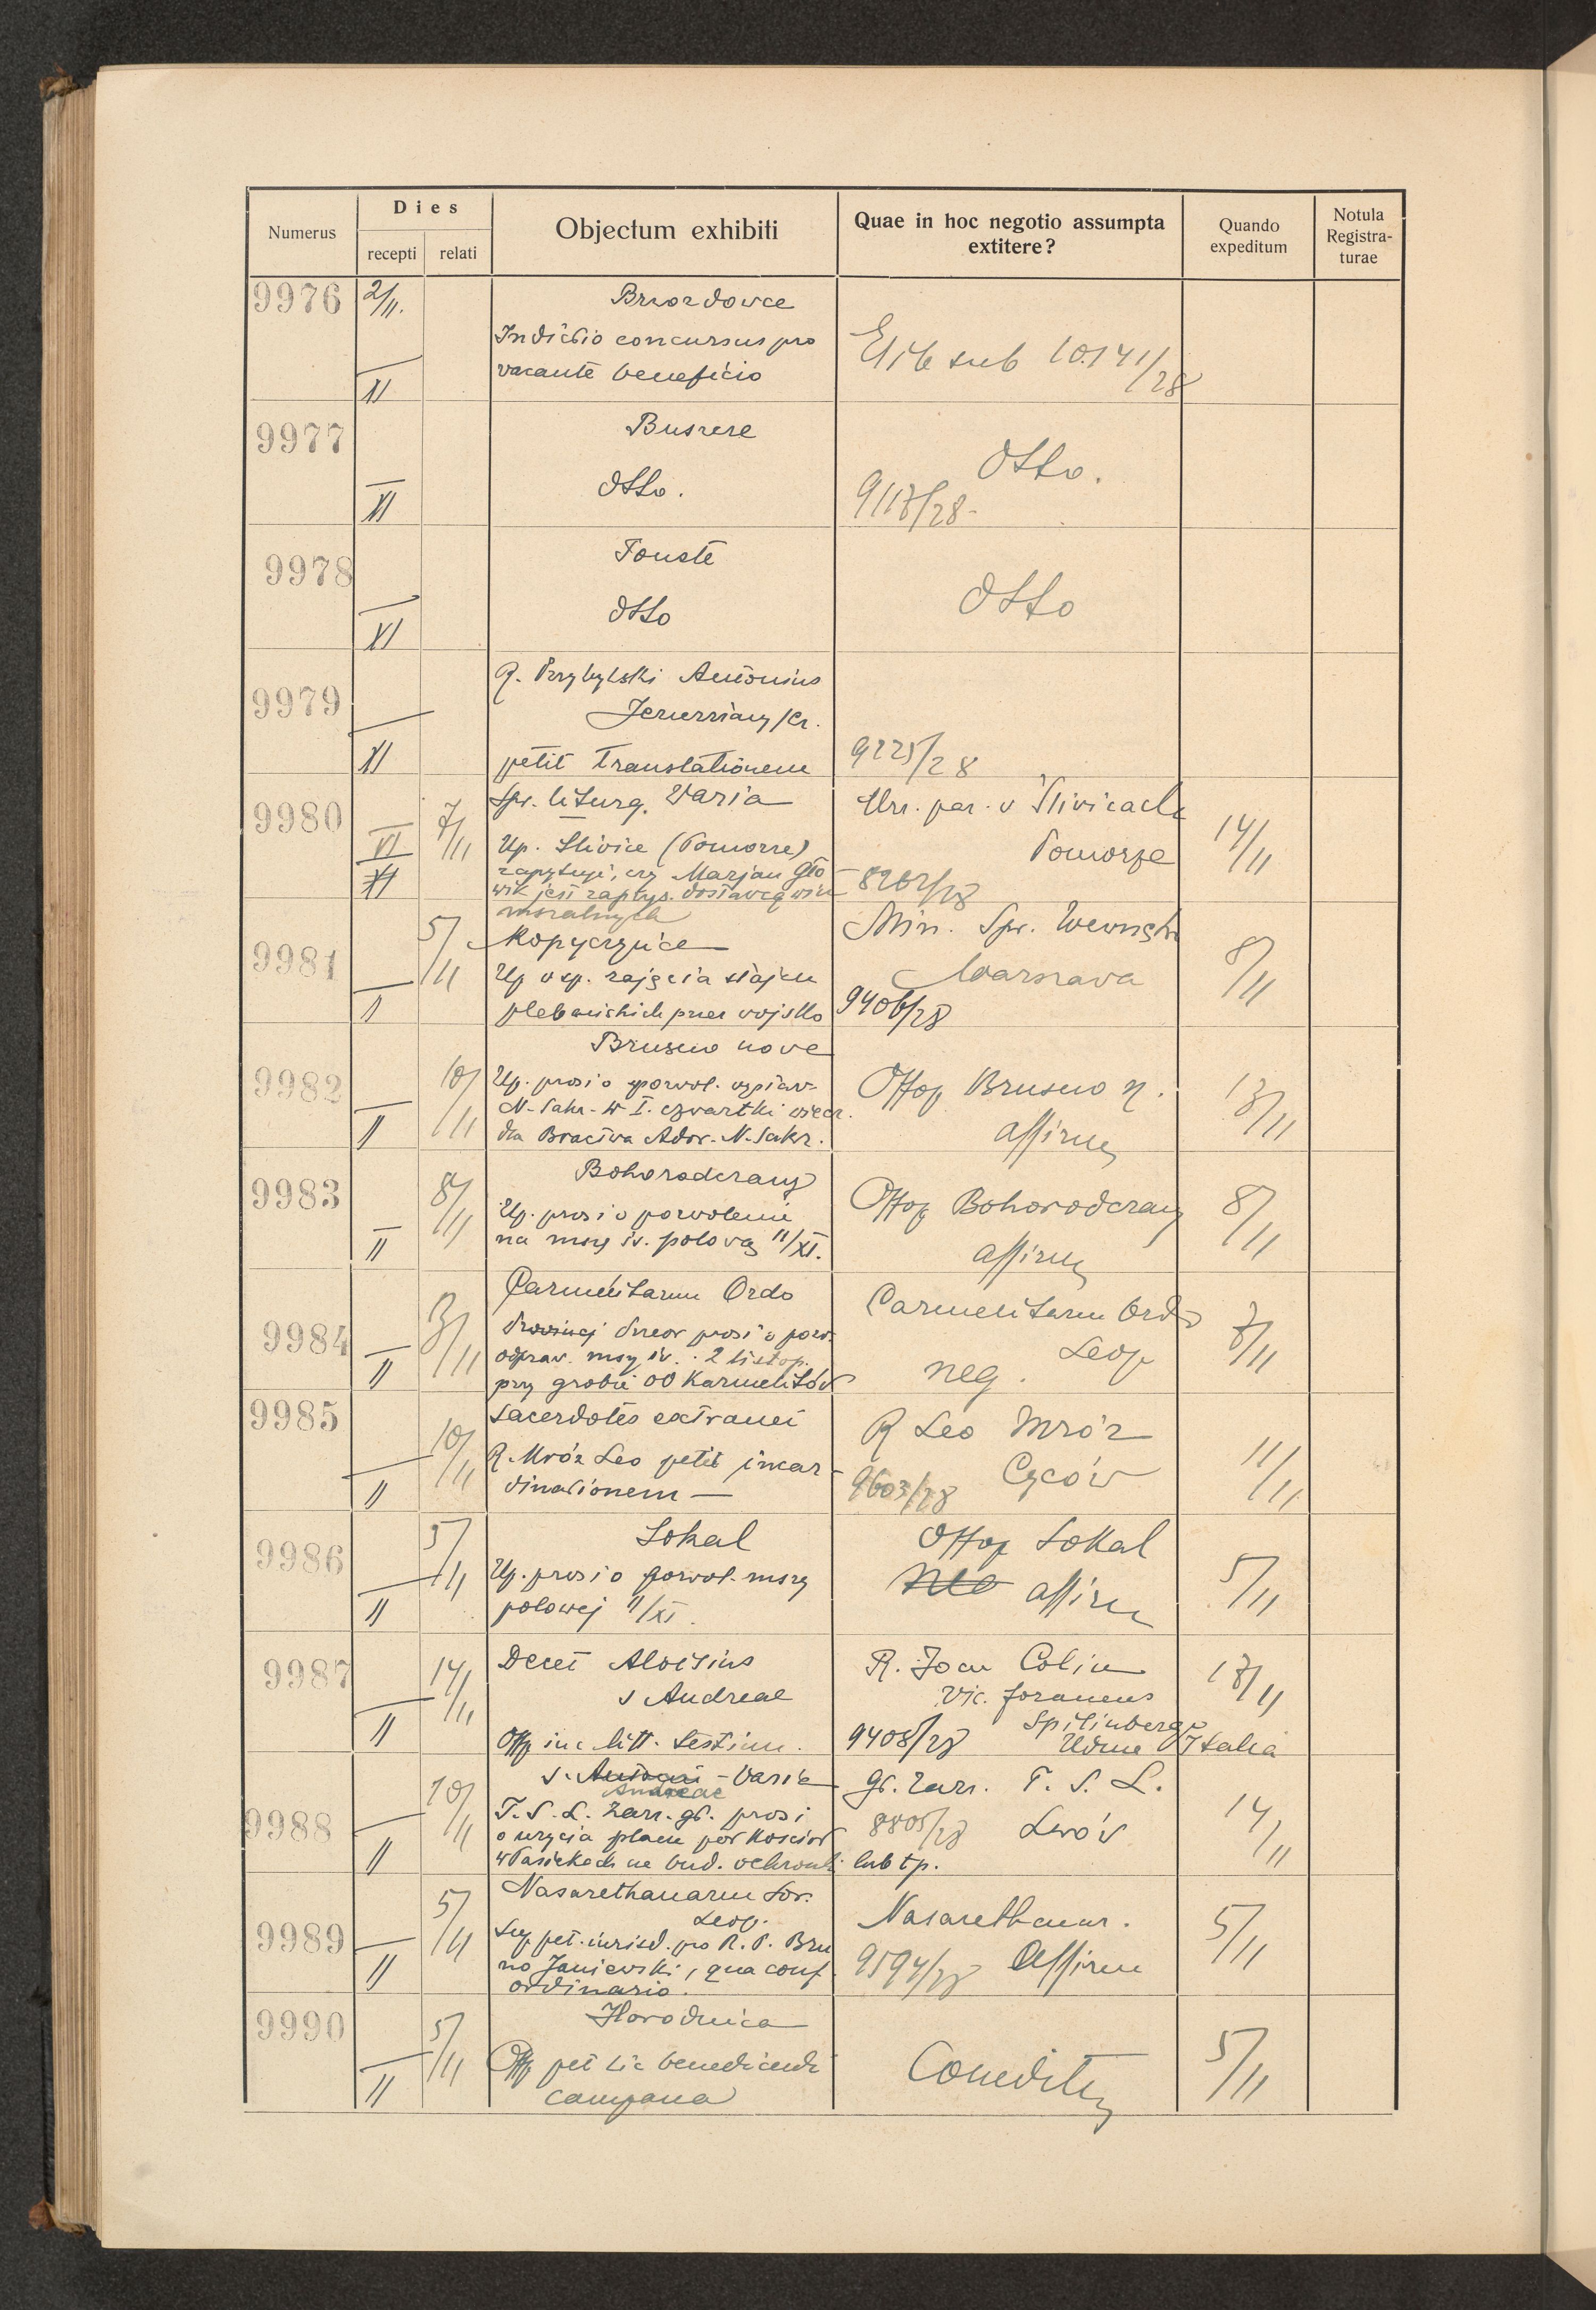 Numerus
Dies
recepti
relati
Objectum exhibiti
Quae in hoc negotio assumpta
extitere?
Quando
expeditum
Notula
Registra-
turae
9976
2/11.
Brzozdowce
Indictio concursus pro
vacante beneficio
sub 10.141/28
9977
XI
dtto.
dtto.
9117/28-
9978
XI
Touste
dtto
dtto
9979
XI
R. Przybylski Antonius
Jezierzany
petit translationem
9225/28
9980
7/11
Spr. liturg. Varia
Up. Śliwice (Pomorze)
zapytuje, czy Marjan Gło
wik jest zaprys. dostawcą win
mszalnych
Urz. par. w Śliwicach
Pomorze
8262/28
14/11
9981
5/11
Kopyczyńce
Up w sp. zajęcia stajen
plebańskich przez wojsko
Min. Spr. Wewnętr
Warszawa
9406/28
8/11
9982
11
10/11
Brusno nowe
Up. prosi o pozwol. wystaw.
N. Sakr. w I. czwartki
dla Bractwa Ador. N. Sakr.
Offop Brusno n.
affirm
13/11
9983
11
8/11
Bohorodczany
Up. prosi o pozwolenie
na mszę św. polową 11/XI.
Offop Bohorodczany
affirm
8/11
9984
11
Carmelitarum Ordo
prosi o pozw.
odpraw. mszy św. 2 listop.
przy grobie OO Karmelitów
Carmelitarum Ordo
Leop
neg.
7/11
9985
11
10/11
Sacerdotes extranei
R. Mróz Leo petit incar-
dinationem —
R Leo Mróz
Cyców
9603/28
11/11
9986
11
5/11
Sokal
Up. prosi o pozwol. mszy
polowej 11/XI.
Offop Sokal
affirm
5/11
9987
11
14/11
Decet Aloisius
s Andreae
Off inc litt. testim.
R. Joan Colin
Vic. foraneus
Spilinbergo
9408/28 Udine Italia
13/11
9988
11
10/11
s. Antonii - Varia
Andreae
T. S. L. Zarz. gł. prosi
o użycia placu pod kościół
w Pasiekach na bud. ochronki lub tp.
Gł. Zarz. T. S. L.
8805/28 Lwów
14/11
9989
11
5/11
Nazarethanarum Sor.
Leop.
Sup pet. iurisd. pro R. P. Bru
no Janiewski, qua conf.
ordinario.
Nazarethanar.
9594/28 Affirm
5/11
9990
11
5/11
Horodnica
Off pet lic benedicendi
campana
5/11